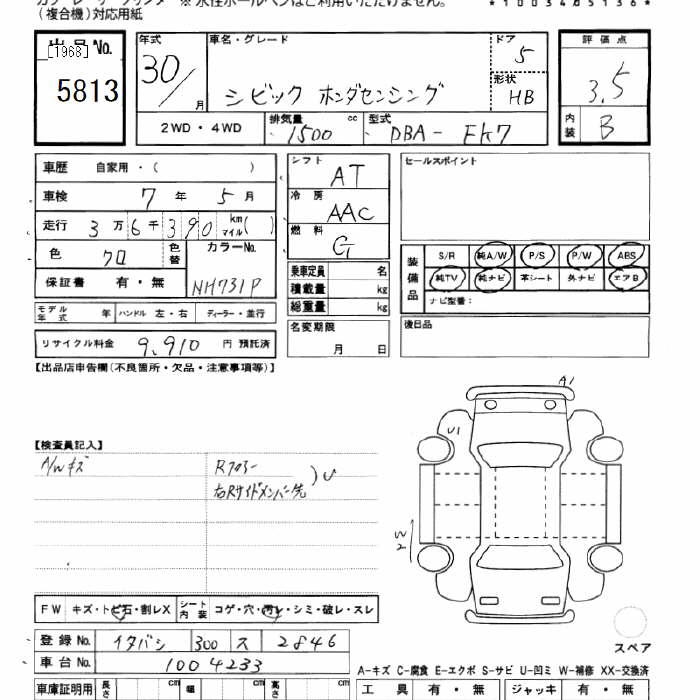 (複合機)対応用紙
*10034051 36*
出品No. [1968]
5813
年式 30/ 月
車名・グレード シビック ホンダセンシング
ドア 5
形状 HB
2WD・4WD 排気量 1500 cc 型式 DBA-FK7
評価点 3.5
内装 B
車歴 自家用・( )
車検 7年 5月
走行 3万6千390 km マイル( )
色 クロ 色替 カラーNo. NH731P
保証書 有・無
モデル年式 年 ハンドル 左・右 ディーラー・並行
リサイクル料金 9,910 円 預託済
シフト AT
冷房 AAC
燃料 G
乗車定員 名
積載量 kg
総重量 kg
名変期限 月 日
セールスポイント
装備品 S/R 純A/W P/S P/W ABS
純TV 純ナビ 革シート 外ナビ エアB
ナビ型番:
後日品
【出品店申告欄(不良箇所・欠品・注意事項等)】
【検査員記入】
A/Wキズ
Rフロアー
右Rサイドメンバー先
)U
A1
U1
W2
スペア
FW キズ・トビ石・割レX シート内装 コゲ・穴・汚レ・シミ・破レ・スレ
登録No. イタバシ 300 ス 2846
車台No. 1004233
車庫証明用 長さ cm 幅 cm 高さ cm
A-キズ C-腐食 E-エクボ S-サビ U-凹ミ W-補修 XX-交換済
工具 有・無 ジャッキ 有・無